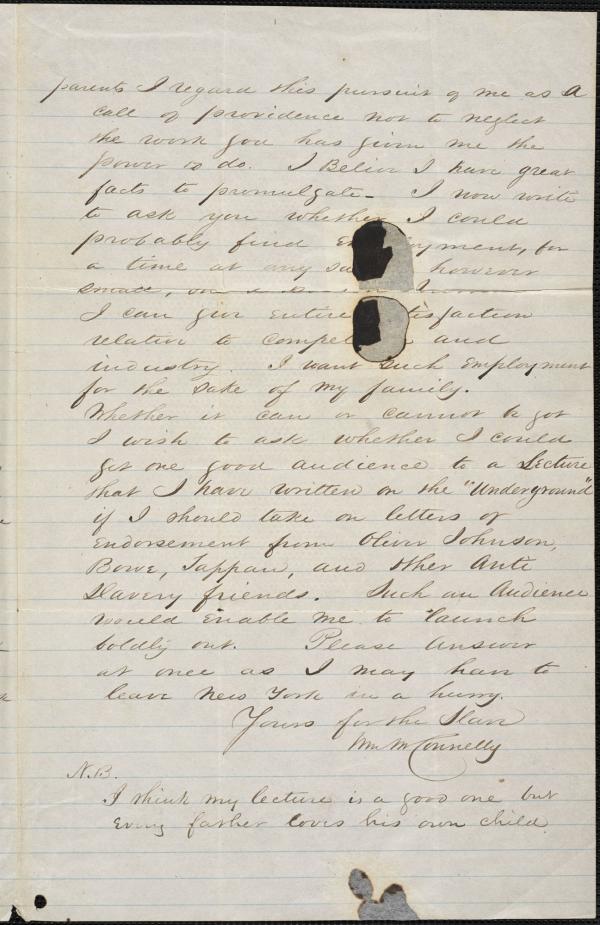 parents I regard this pursuit of me as a
call of providence not to neglect
the work god has given me the
power to do. I Believe I have great
facts to promulgate - I now write
to ask you whether I could
probably find E yment, for
a time at any sa however
small, on
I can give entire tisfaction
relative to compet and
industry. I want such Employment
for the sake of my family.
Whether it can or cannot be got
I wish to ask whether I could
get one good audience to a Lecture
that I have written on the "Underground"
if I should take on letters of
Endorsement from Oliver Johnson,
Bowe, Tappan, and other Anti
Slavery friends. Such an Audience
would Enable me to launch
boldly out. Please Answer
at once as I may have to
leave New York in a hurry.
Yours for the Slave
Wm M Connelly
N.B.
I think my lecture is a good one but
Every father loves his own child.